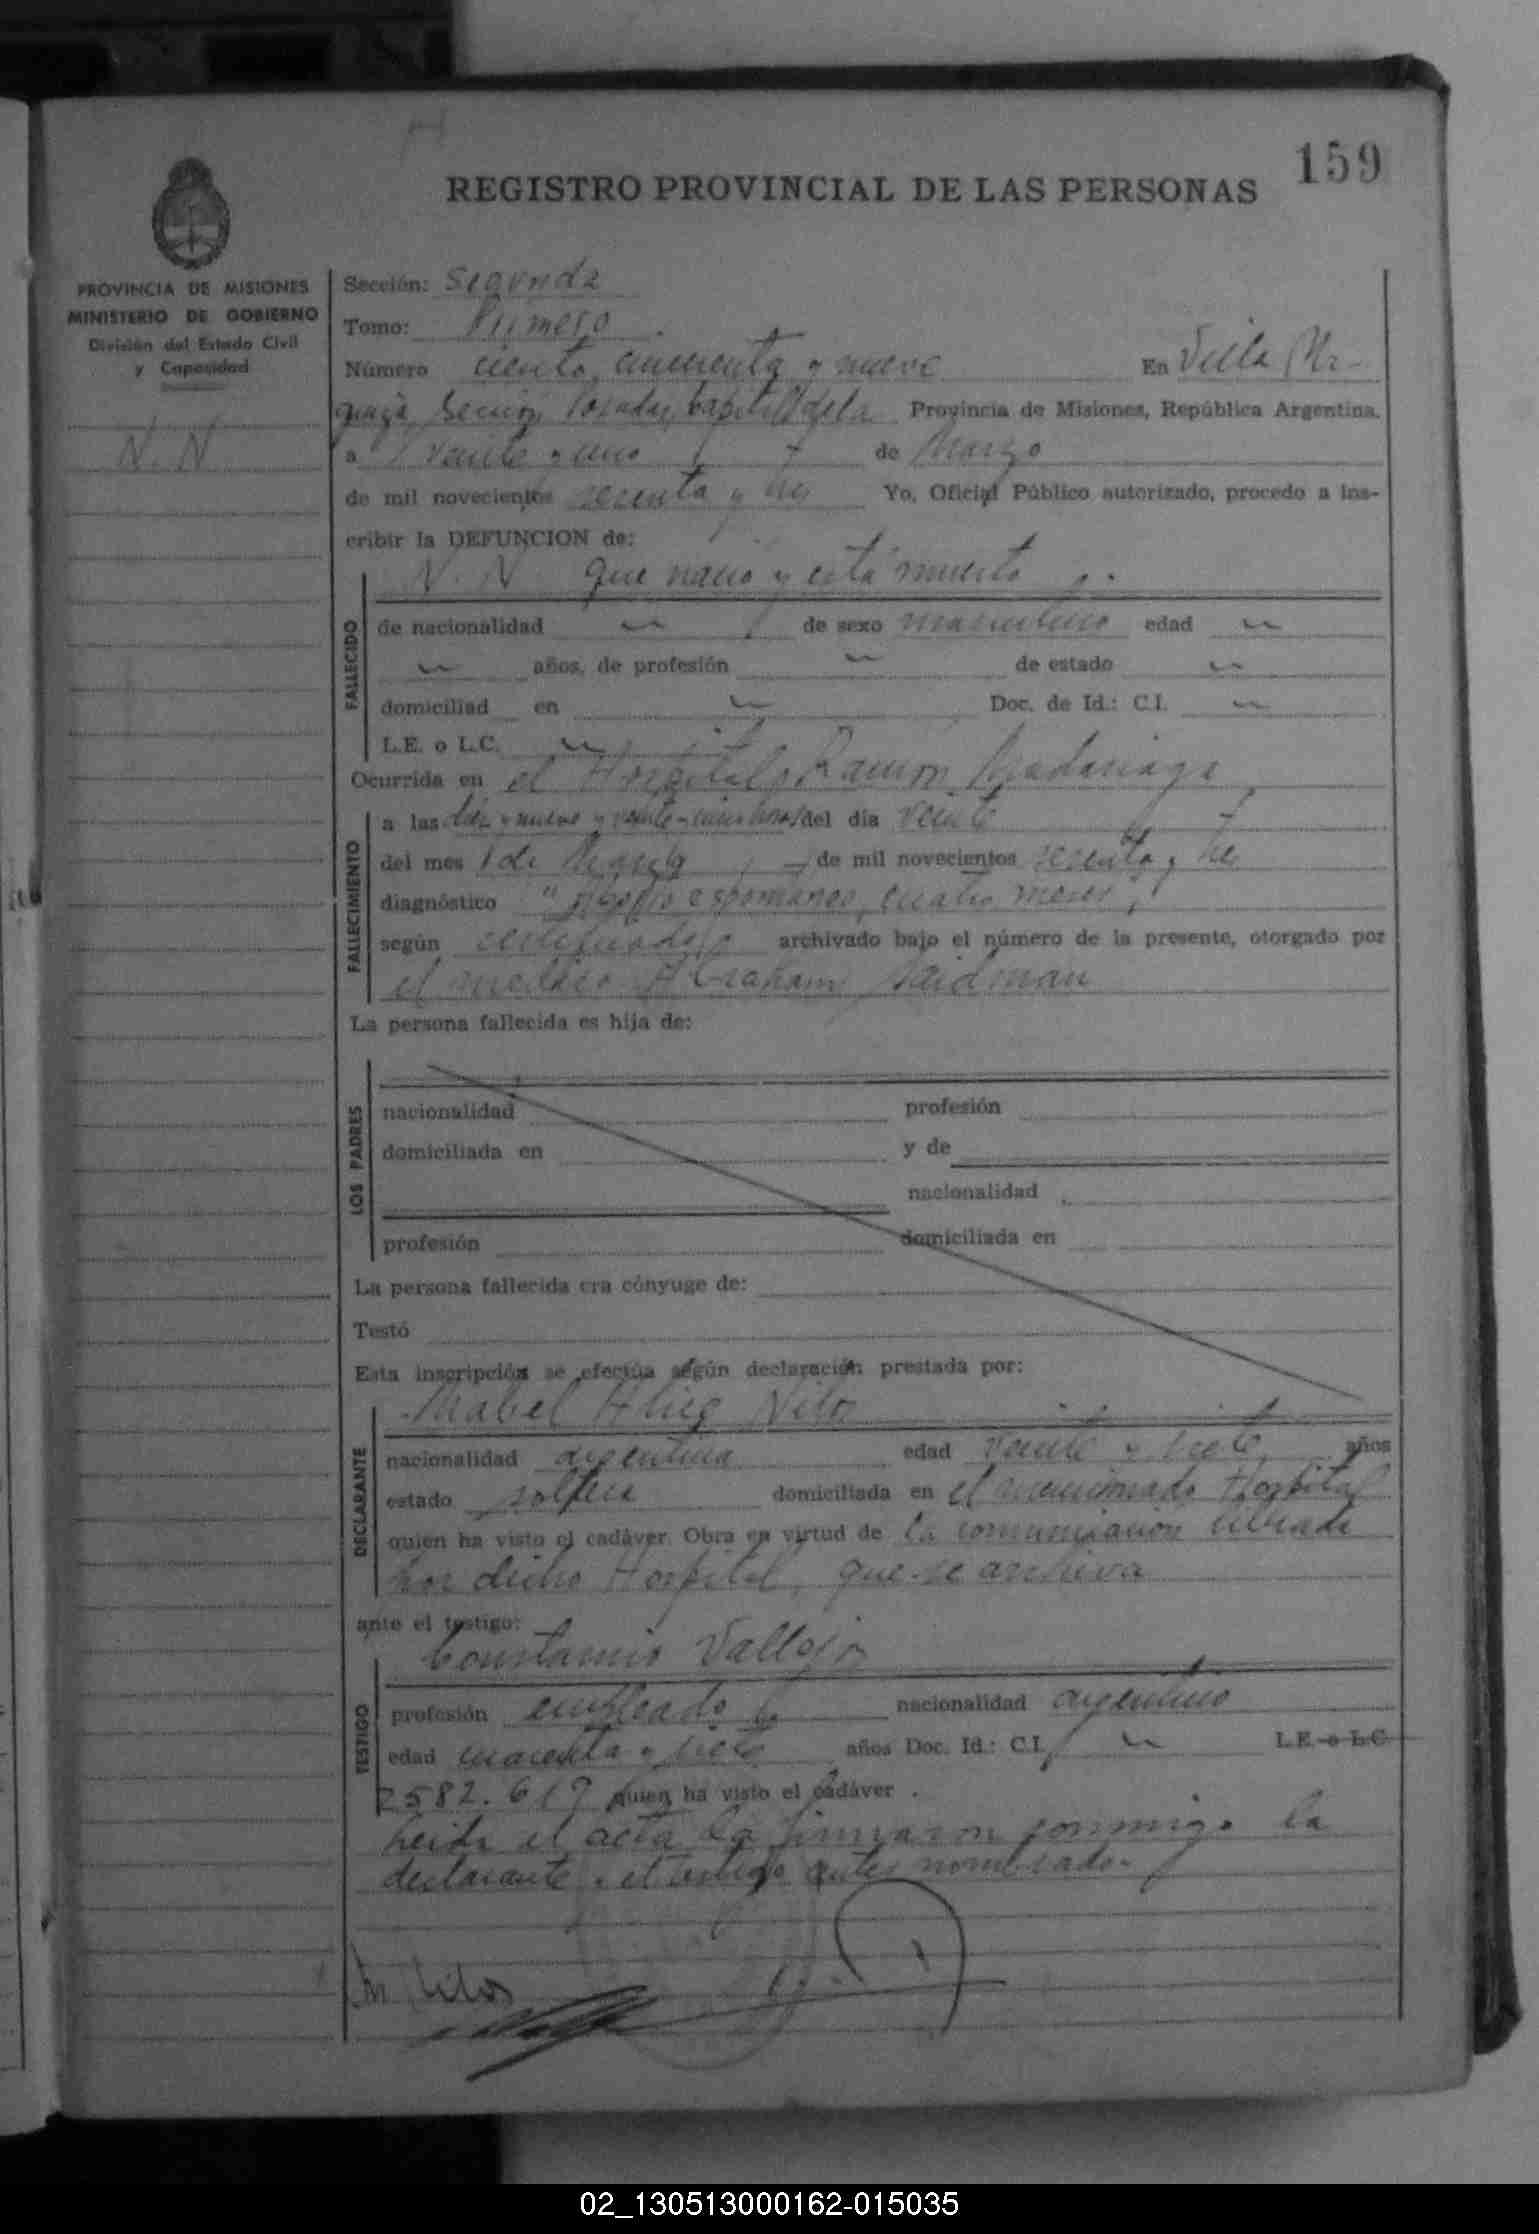 159
REGISTRO PROVINCIAL DE LAS PERSONAS
PROVINCIA DE MISIONES
MINISTERIO DE GOBIERNO
División del Estado Civil
y Capacidad
N. N
Sección: Segunda
Tomo: Primero
Número ciento cincuenta y nueve En Villa Ur-
quiza Sección Posadas, Capital de la Provincia de Misiones, República Argentina,
a veinte y uno de Marzo
de mil novecientos sesenta y tres Yo, Oficial Público autorizado, procedo a ins-
cribir la DEFUNCION de:
N. N que nació y está muerto
FALLECIDO
de nacionalidad de sexo masculino edad
años, de profesión de estado
domiciliad en Doc. de Id.: C.I.
L.E. o L.C.
Ocurrida en el Hospital Ramón Madariaga
FALLECIMIENTO
a las diez y nueve y veinte y cinco horas del día veinte
del mes de Marzo de mil novecientos sesenta y tres
diagnóstico cuatro meses
según certificado archivado bajo el número de la presente, otorgado por
el médico Abraham Saidman
La persona fallecida es hija de:
LOS PADRES
nacionalidad profesión
domiciliada en y de
nacionalidad
profesión domiciliada en
La persona fallecida era cónyuge de:
Testó
Esta inscripción se efectúa según declaración prestada por:
DECLARANTE
Mabel
nacionalidad argentina edad veinte y siete años
estado soltera domiciliada en el mencionado Hospital
quien ha visto el cadáver. Obra en virtud de la comunicación librada
por dicho Hospital, que se archiva
ante el testigo:
Constancio Vallejos
TESTIGO
profesión empleado nacionalidad argentino
edad cuarenta y siete años Doc. Id.: C.I. L.E. o L.C.
2582.619 quien ha visto el cadáver .
Leída el acta la firmaron conmigo la
declarante y el testigo antes nombrado.
02_130513000162-015035